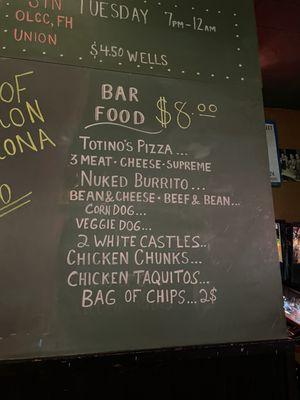 SIN
TUESDAY 7PM-12AM
OLCC, FH
UNION
$4.50 WELLS
OF
ONA
BAR
FOOD
$8.00
TOTINO'S PIZZA...
3 MEAT · CHEESE · SUPREME
NUKED BURRITO...
BEAN & CHEESE · BEEF & BEAN...
CORN DOG...
VEGGIE DOG...
2 WHITE CASTLES...
CHICKEN CHUNKS...
CHICKEN TAQUITOS...
BAG OF CHIPS...2$